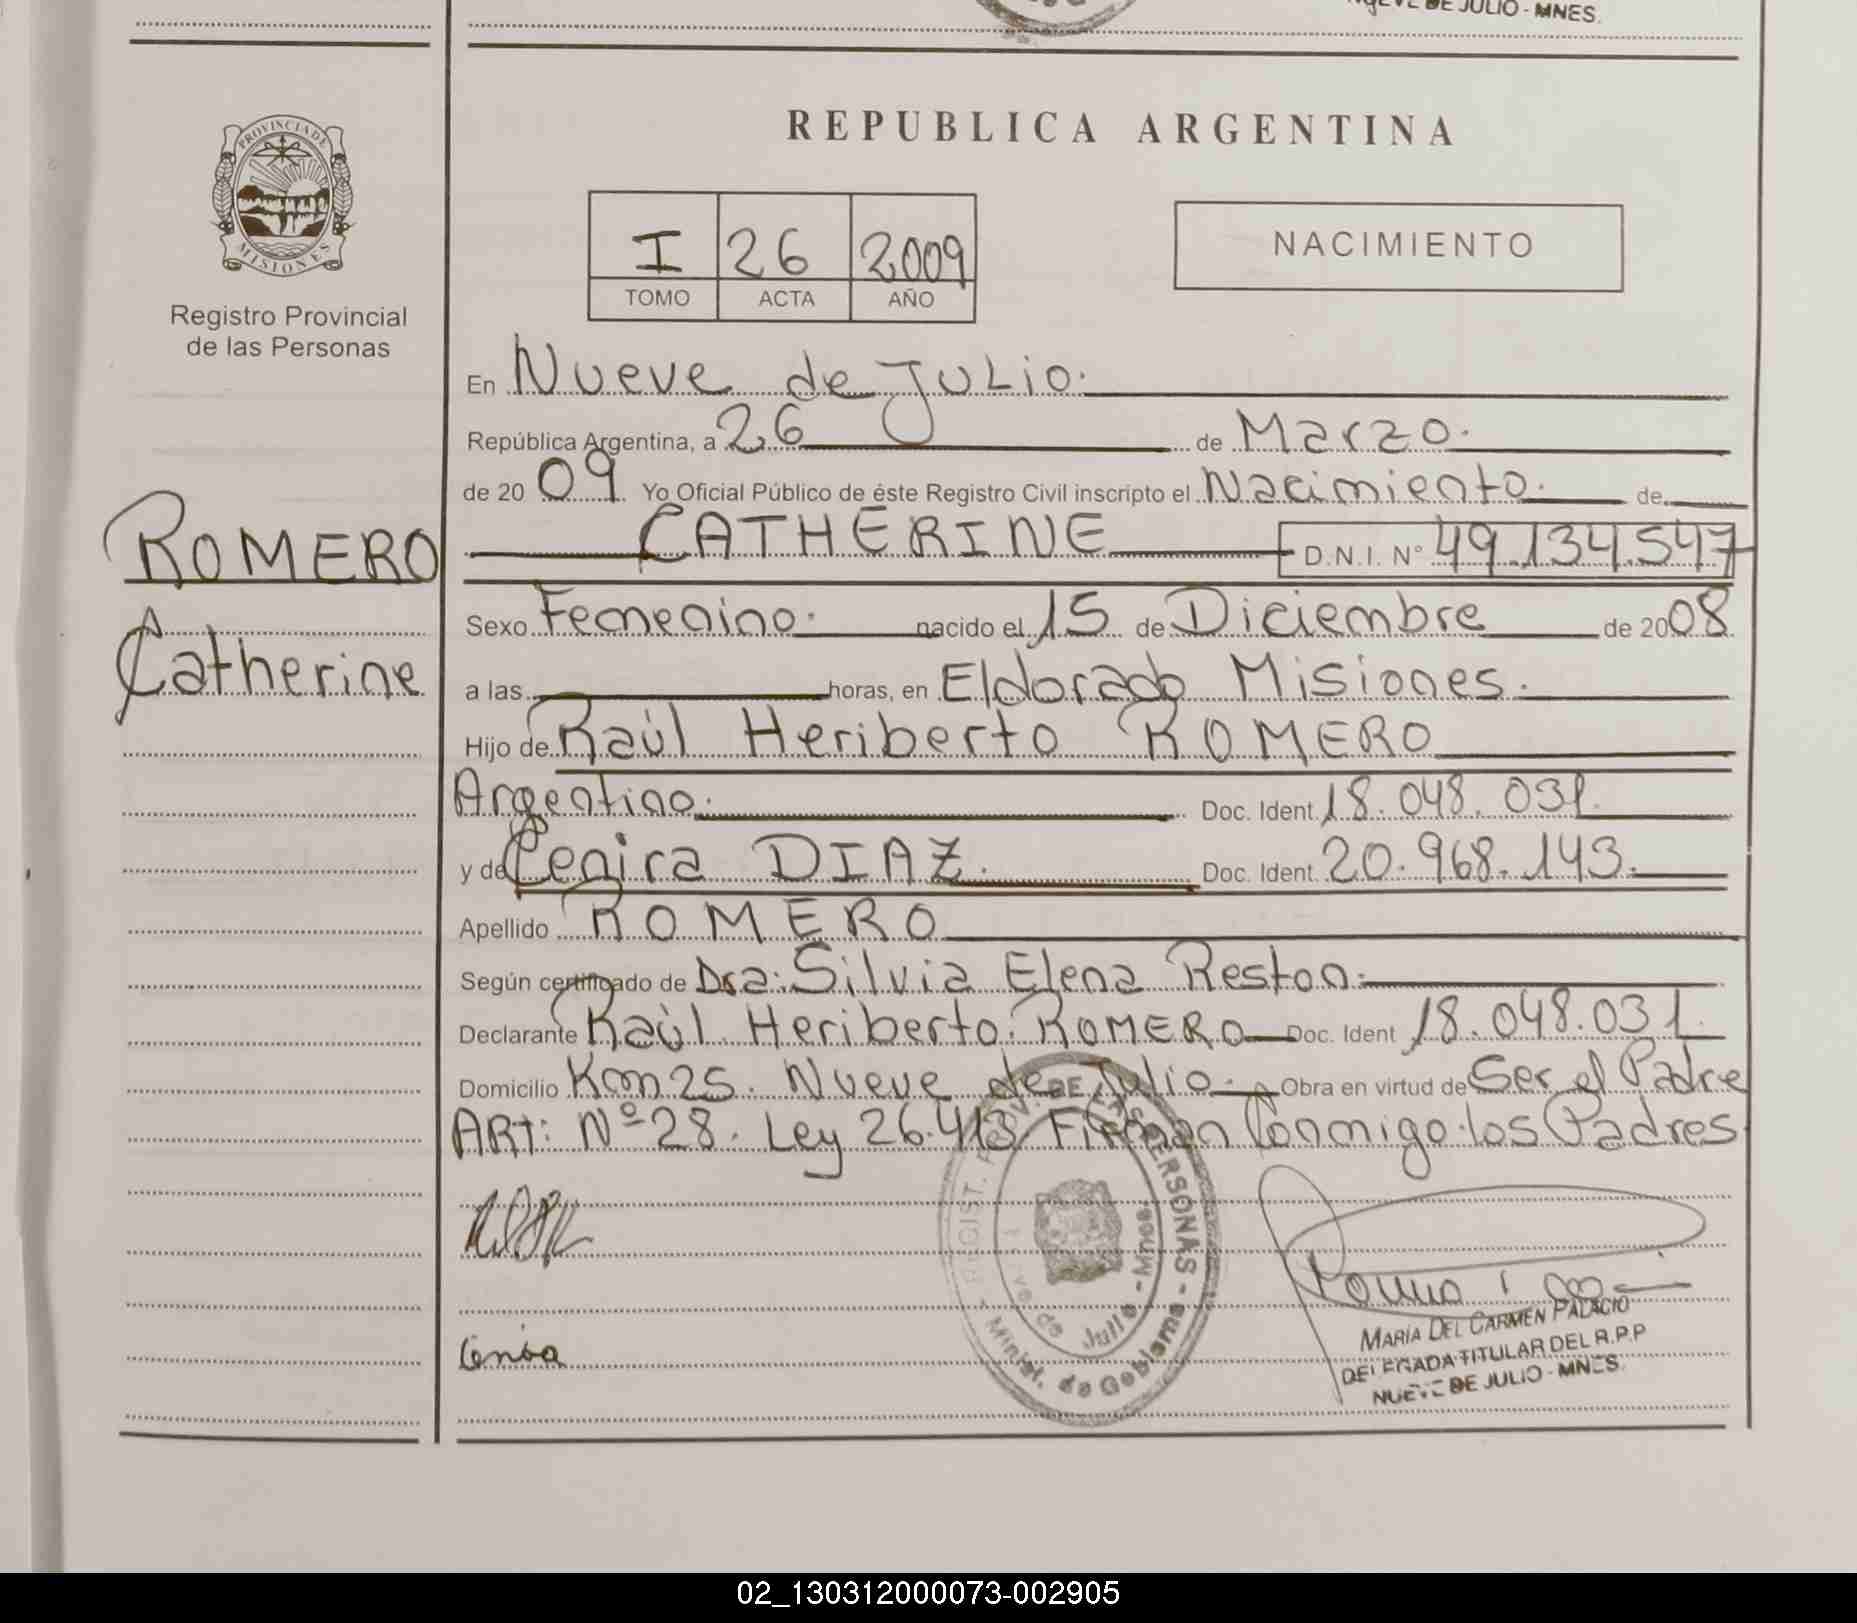 NUEVE DE JULIO - MNES.
PROVINCIA DE
MISIONES
Registro Provincial
de las Personas
ROMERO
Catherine
REPUBLICA ARGENTINA
I 26 2009
TOMO ACTA AÑO
NACIMIENTO
En Nueve de Julio.
República Argentina, a 26 de Marzo.
de 20 09 Yo Oficial Público de éste Registro Civil inscripto el Nacimiento. de
CATHERINE D.N.I. N° 49.134.547
Sexo Femenino. nacido el 15 de Diciembre de 2008
a las horas, en Eldorado Misiones.
Hijo de Raúl Heriberto ROMERO
Argentino. Doc. Ident. 18.048.031.
y de Cenira DIAZ. Doc. Ident. 20.968.143.
Apellido ROMERO
Según certificado de Dra. Silvia Elena Reston.
Declarante Raúl Heriberto ROMERO Doc. Ident 18.048.031.
Domicilio Km 25. Nueve de Julio. Obra en virtud de Ser el Padre
ART: Nº 28. Ley 26.413 Firman Conmigo los Padres
REGIST. PROV. DE LAS PERSONAS - Minist. de Gobierno -
Nueve de Julio - Mnes.
Cenira
MARÍA DEL CARMEN PALACIO
DELEGADA TITULAR DEL R.P.P
NUEVE DE JULIO - MNES.
02_130312000073-002905